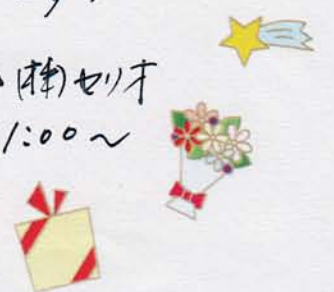 (株)セリオ
1:00～